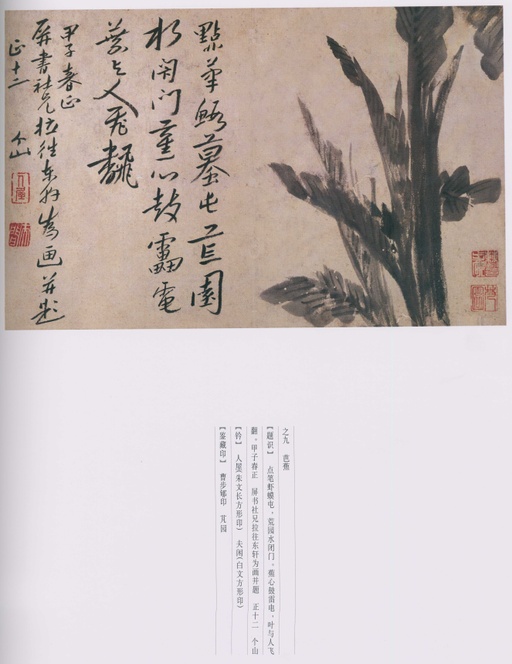 點筆蝦蟇屯荒園
水閉門蕉心鼓靁電
葉与人飛飜
甲子春正
屏書社兄拉往東軒為画并題
正十二 个山
人屋
之九 芭蕉
【题识】 点笔虾蟆屯,荒园水闭门,蕉心鼓雷电,叶与人飞
翻。甲子春正 屏书社兄拉往东轩为画并题 正十二 个山
【钤】 人屋(朱文长方形印) 夫闲(白文方形印)
【鉴藏印】 曹步郇印 芃园